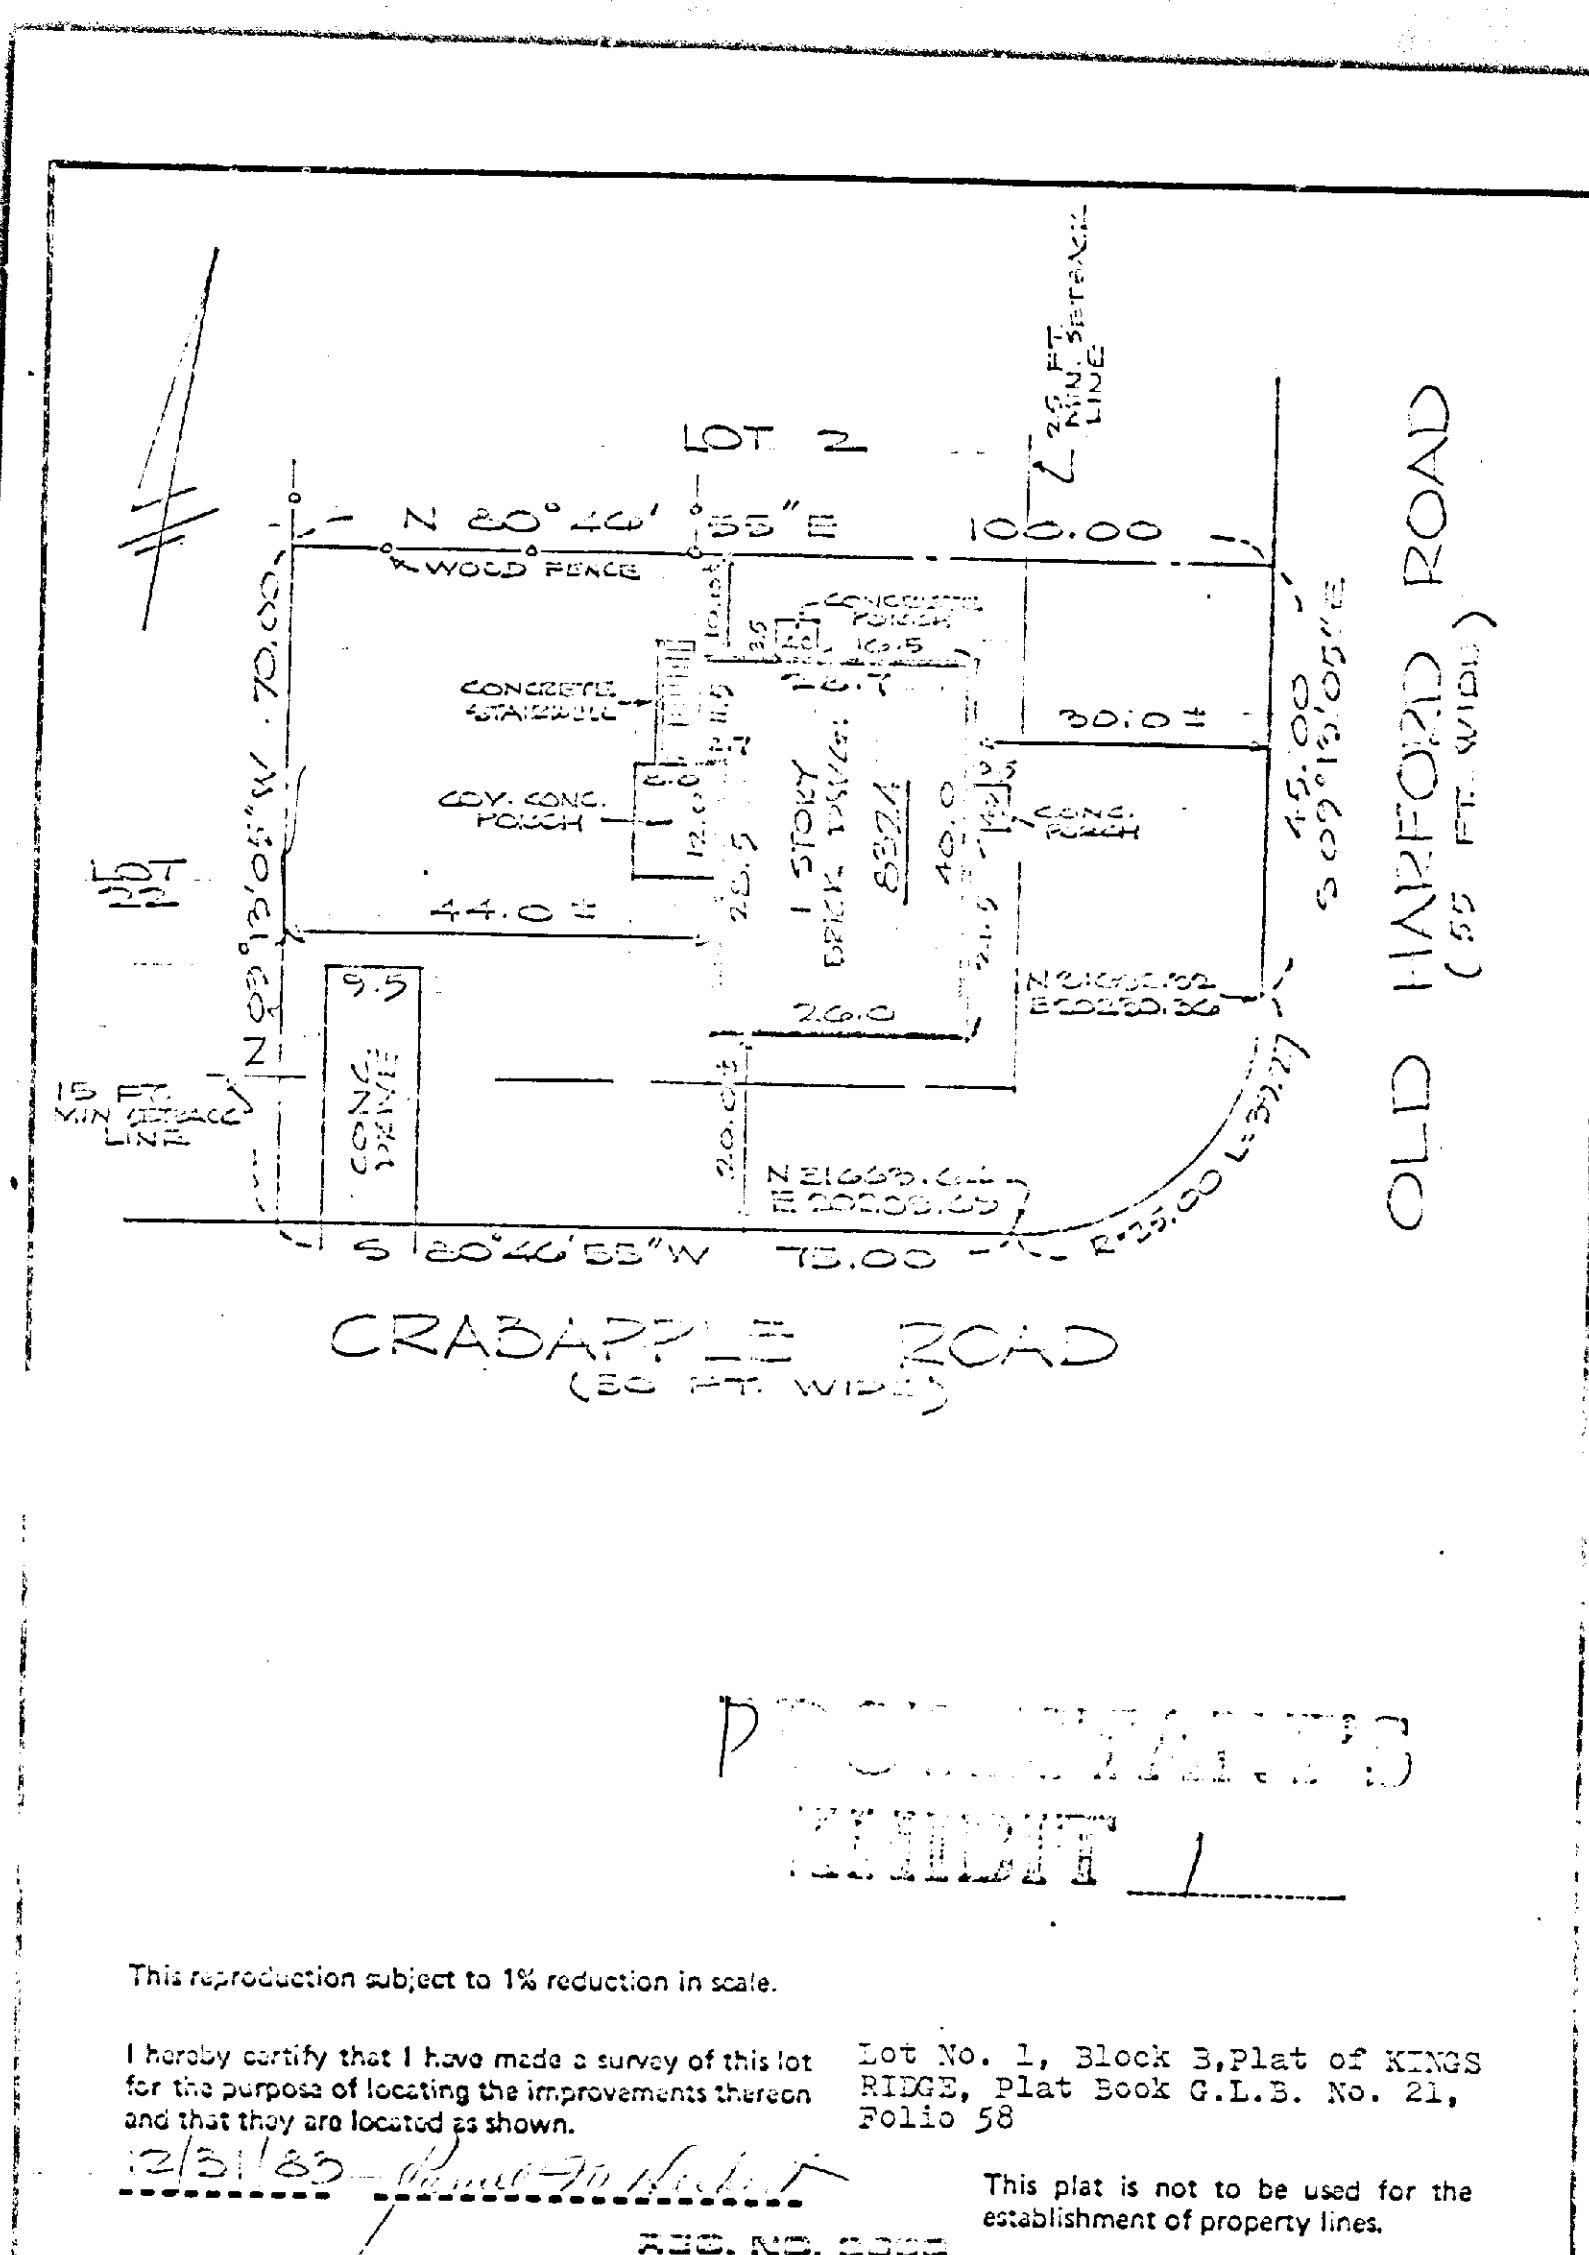 25 FT.
MIN. SETBACK
LINE
LOT 2
N 80° 46' 55" E 100.00
WOOD FENCE
10.0±
CONCRETE
PORCH
3.5
4.0
16.5
26.7
CONCRETE
STAIRWELL
11.5
30.0 ±
6.0
COV. CONC.
PORCH
12.0
28.5
1 STORY
BRICK DWLG.
40.0
CONC.
PORCH
21.5
N 09° 13' 05" W 70.00
45.00
S 09° 13' 05" E
OLD HARFORD ROAD
(55 FT. WIDE)
LOT
22
44.0 ±
9.5
CONC.
DRIVE
26.0
E 20230.36
15 FT.
MIN SETBACK
LINE
20.0±
R=25.00 L=39.27
S 80° 46' 55" W 75.00
CRABAPPLE ROAD
(50 FT. WIDE)
EXHIBIT 1
This reproduction subject to 1% reduction in scale.
I hereby certify that I have made a survey of this lot
for the purpose of locating the improvements thereon
and that they are located as shown.
Lot No. 1, Block B,Plat of KINGS
RIDGE, Plat Book G.L.B. No. 21,
Folio 58
12/31/83
This plat is not to be used for the
establishment of property lines.
REG. NO.